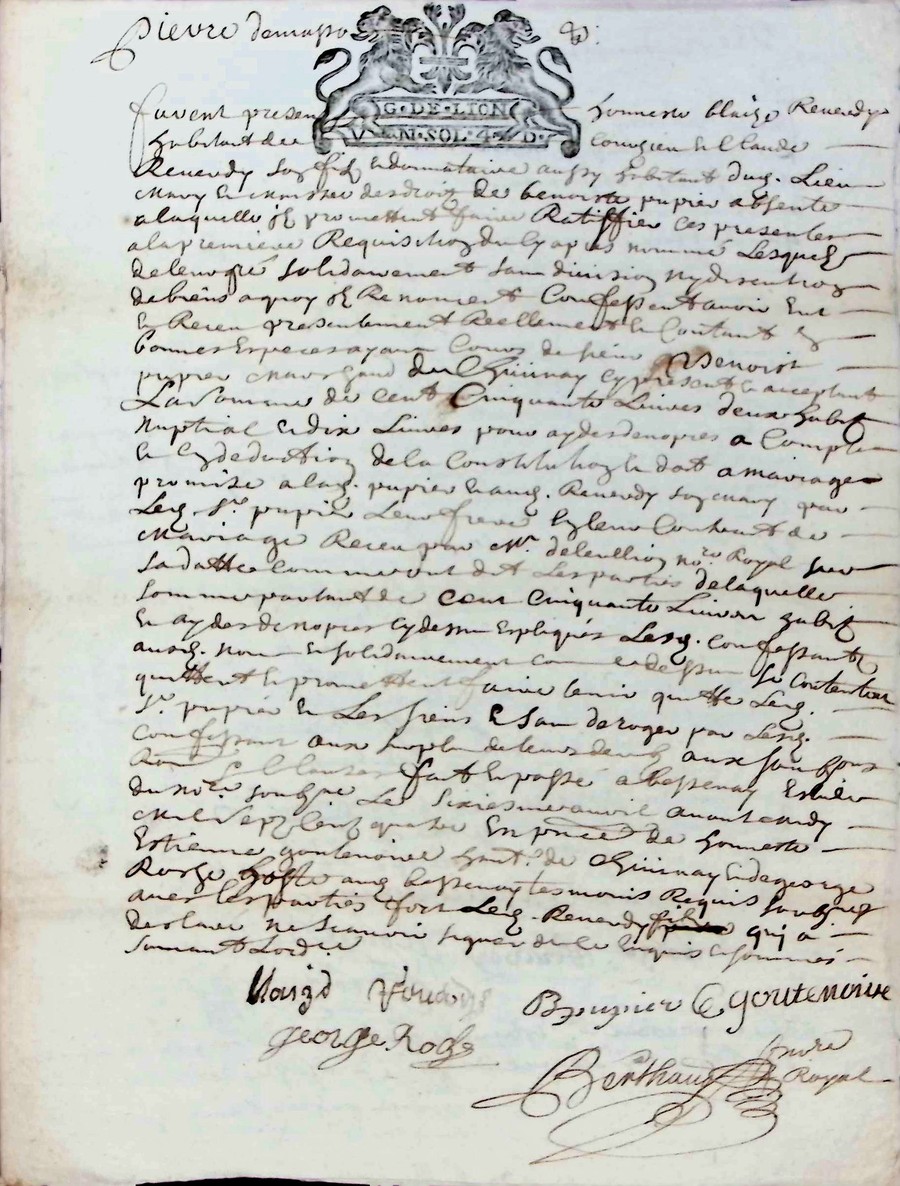 pierre
G·DE·LION
V N·SOL·4·D·
furent presen honneste blaize Reverdy
habitant de Courzieu et Claude
Reverdy soz filz et donnataire aussy habitant dud. Lieu
mary et maistre des droitz de benoiste pupier absente
a laquelle ilz promettent faire Ratiffier ces presentes
a la premiere Requisition du cy apres nommé Lesquelz
de leur gré solidairement sans division ny discution
de biens a quoy ilz Renoncent Confessent avoir Eut
et Receu presentement Reellement et Contant En
bonnes Especes ayant Cours de sieur Benoist
pupier marchand de Chiurnay cy present et acceptant
La somme de cent Cinquante Livres deux habitz
nuptial et dix Livres pour aydes de nopces a Compte
et En deduction de la Constitution et dot a mariage
promise a lad. pupier et aud. Reverdy soz mary par
Led. Sr. pupier Leur frere En leur Contract de
mariage Receu par Me. deleullion nore. Royal sur
sa datte comme ont dit Les parties de laquelle
somme partant de Cent Cinquante Livres habitz
et aydes de nopces cy dessus Expliqués Lesd. Confessantz
ausd. noms et solidairement comme dessus se Contentent
quittent et promettent faire tenir quitte Led.
Sr. pupier et Les siens et sans deroger par Lesd.
Confessant aux surplus de leurs droitz aux
fait et passé a bessenay Estude
du nore. soubzné Le Sixiesme avril avant midy
mil sept Cent quatre En pnce de honneste
Estienne goutenoire hant. de Chiurnay et de george
Roche hoste aud bessenay tesmoins Requis soubznez
avec Les parties fors Led. Reverdy filz qui a
declaré ne scavoir signer de ce Enquis et sommés
suivant Lordre
blaizd Reverdy
B pupier E goutenoire
george Roche
Berthaud nore
Royal